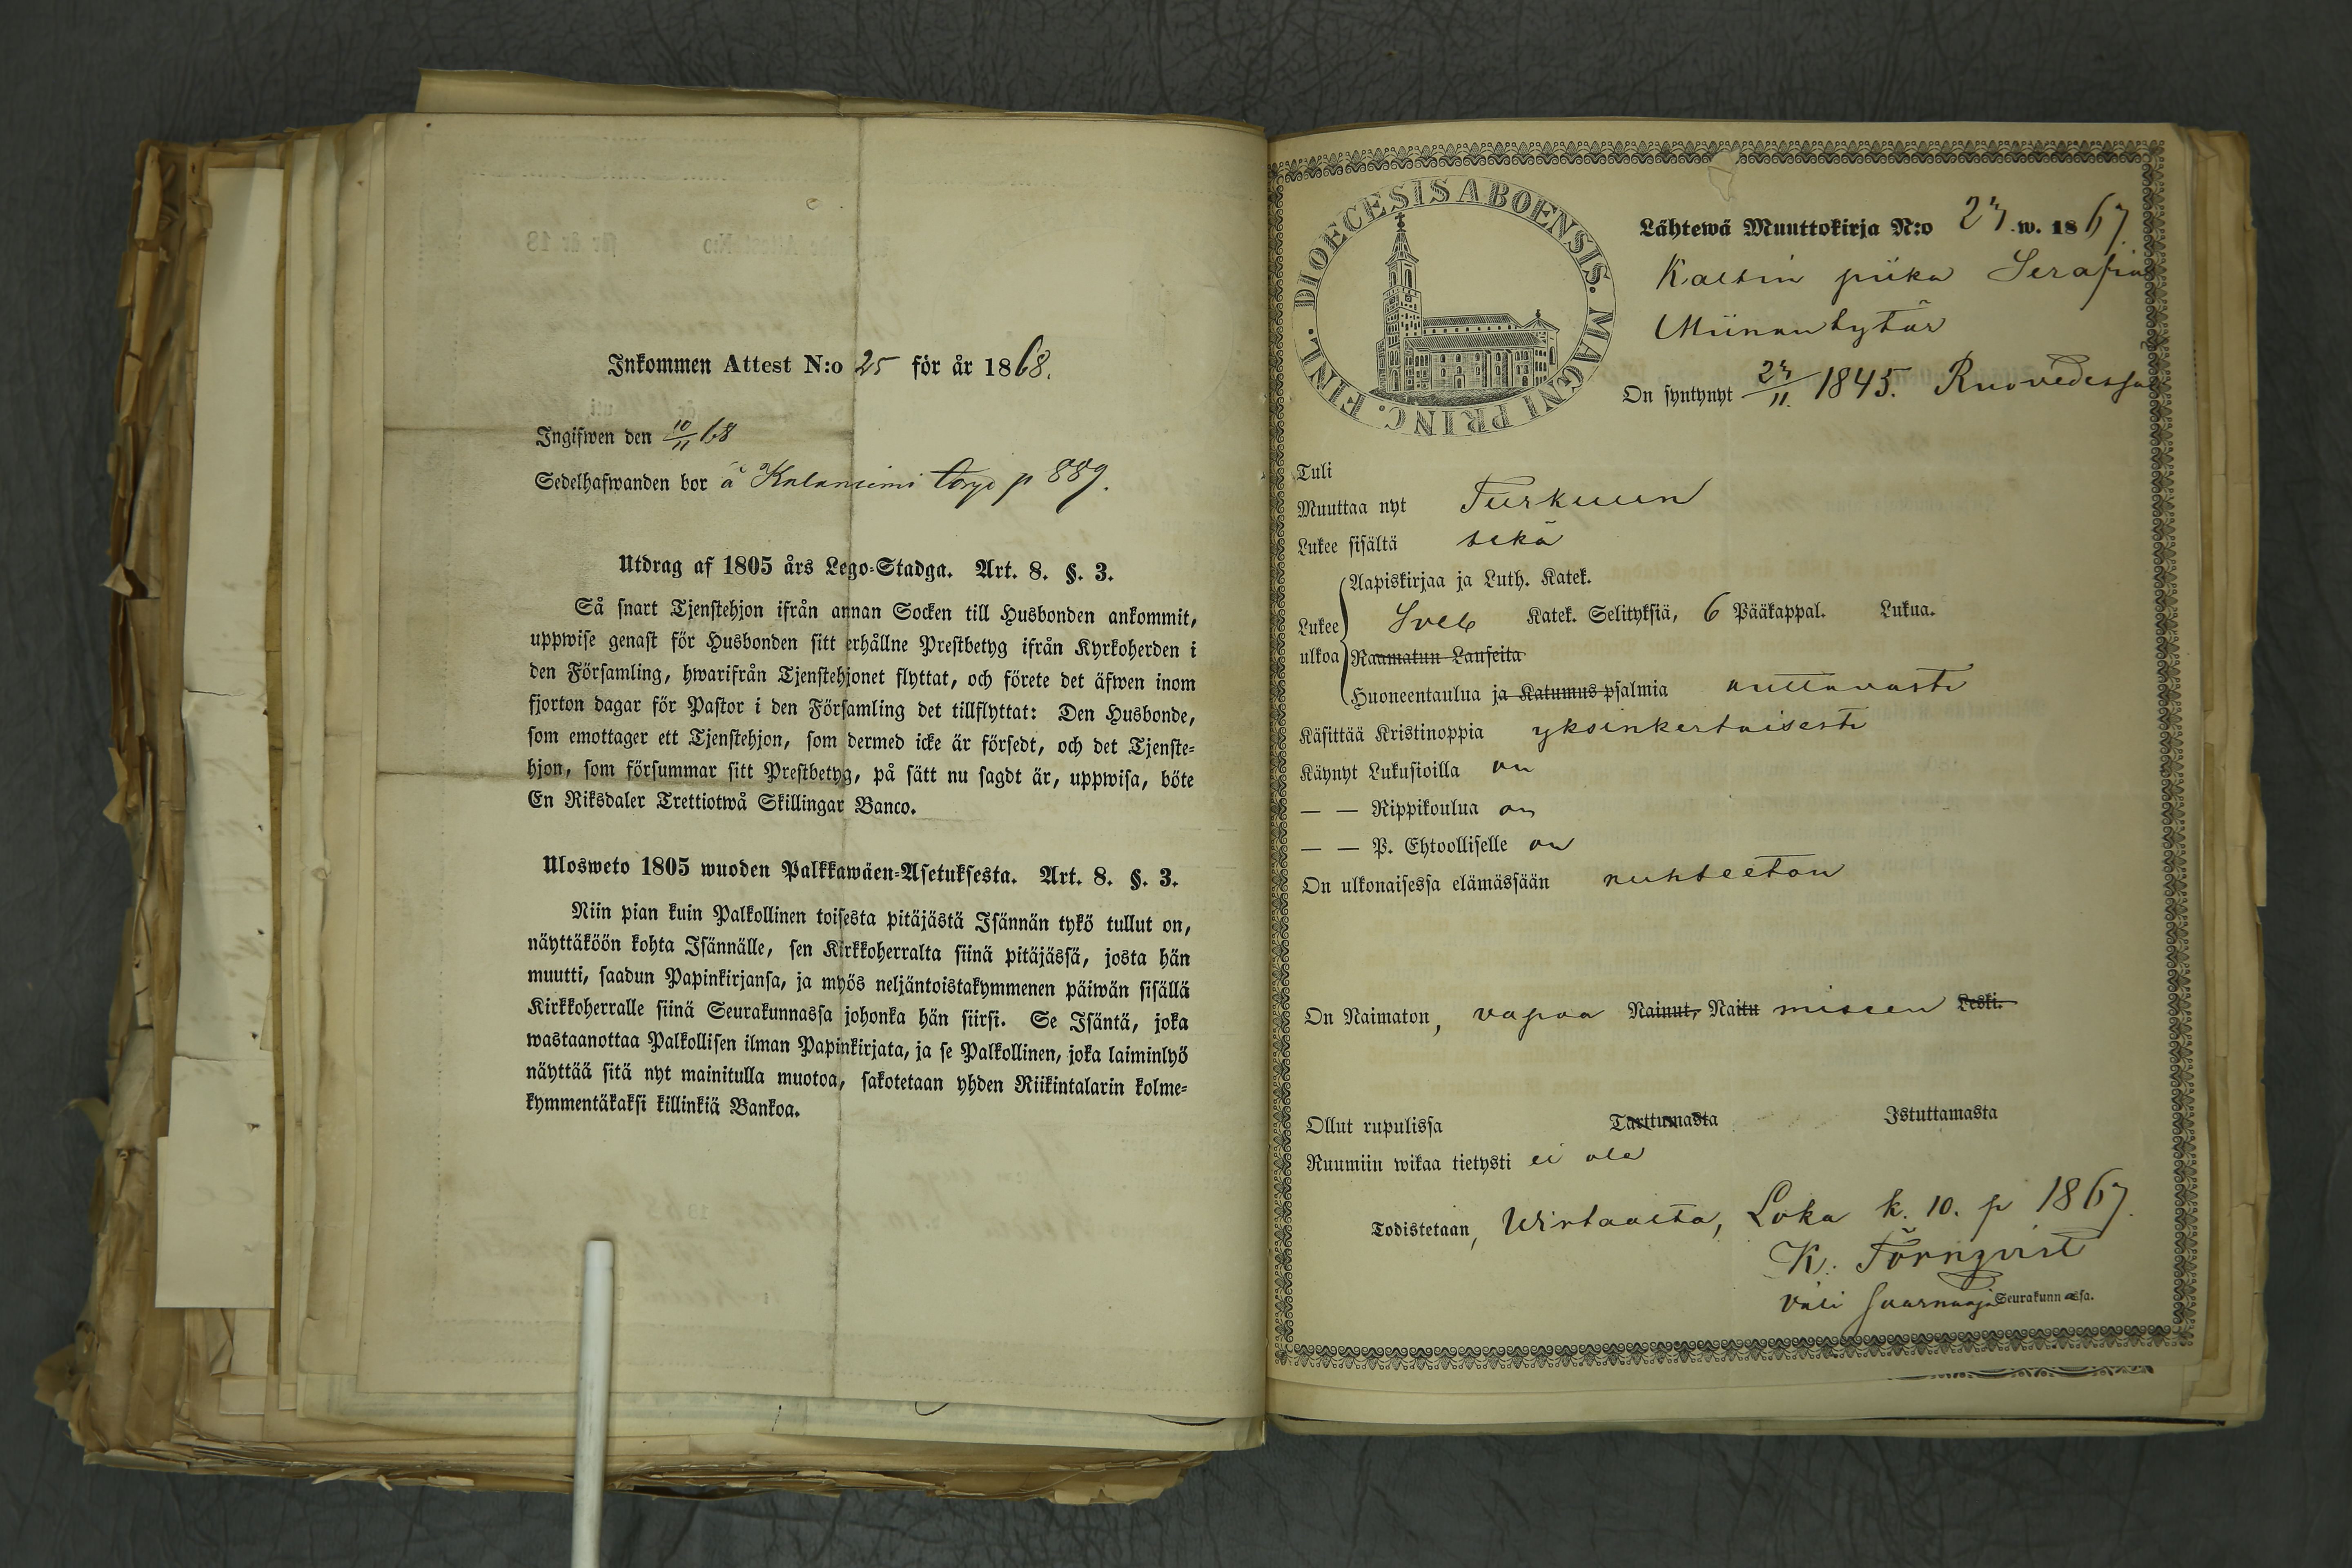 Inkommen Attest N:o 25 för år 1868.
Ingifwen den 10/11 68
Sedelhafwanden bor å Kalaniemi torp p 889.
Utdrag af 1805 års Lego-Stadga. Art. 8. §. 3.
Så snart Tjenstehjon ifrån annan Socken till Husbonden ankommit,
uppwise genast för Husbonden sitt erhållne Prestbetyg ifrån Kyrkoherden i
den Församling, hwarifrån Tjenstehjonet flyttat, och förete det äfwen inom
fjorton dagar för Pastor i den Församling det tillflyttat: Den Husbonde,
som emottager ett Tjenstehjon, som dermed icke är försedt, och det Tjenste-
hjon, som försummar sitt Prestbetyg, på sätt nu sagdt är, uppwisa, böte
En Riksdaler Trettiotwå Skillingar Banco.
Ulosweto 1805 wuoden Palkkawäen-Asetuksesta. Art. 8. §. 3.
Niin pian kuin Palkollinen toisesta pitäjästä Isännän tykö tullut on,
näyttäköön kohta Isännälle, sen Kirkkoherralta siinä pitäjässä, josta hän
muutti, saadun Papinkirjansa, ja myös neljäntoistakymmenen päiwän sisällä
Kirkkoherralle siinä Seurakunnassa johonka hän siirsi. Se Isäntä, joka
wastaanottaa Palkollisen ilman Papinkirjata, ja se Palkollinen, joka laiminlyö
näyttää sitä nyt mainitulla muotoa, sakotetaan yhden Riikintalarin kolme-
kymmentäkaksi killinkiä Bankoa.
DIOECESIS ABOENSIS. MAGNI PRINC. FINL.
Lähtewä Muuttokirja N:o 27. w. 1867.
piika Serafia
Miinantytär
On syntynyt 1845. Ruovedessä
Tuli
Muuttaa nyt Turkuun
Lukee sisältä sekä
Aapiskirjaa ja Luth. Kateк.
Lukee Sveb Katek. Selityksiä, 6 Pääkappal. Lukua.
ulkoa Raamatun Lauseita
Huoneentaulua ja Katumus psalmia auttavasti
Käsittää Kristinoppia yksinkertaisesti
Käynyt Lukusioilla on
— — Rippikoulua on
— — P. Ehtoolliselle on
On ulkonaisessa elämässään nuhteeton
On Naimaton, vapaa Nainut, Naitu Leski.
Ollut rupulissa Tarttumasta Istuttamasta
Ruumiin wikaa tietysti ei ole
Todistetaan, Loka k. 10. p 1867.
K. Törnqvist
väli saarnaaja Seurakunnassa.